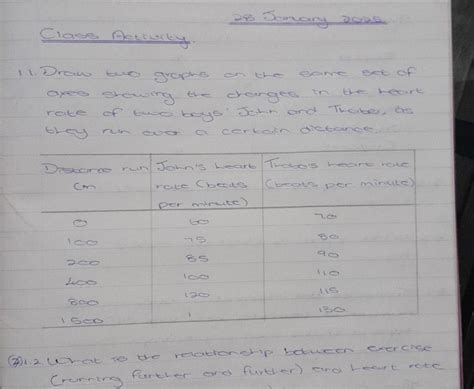 28 January 2025
Class Activity.
1.1. Draw two graphs on the same set of
axes showing the changes in the heart
rate of two boys' John and Thabo, as
they run over a certain distance.
Distance run John's heart Thabo's heart rate
rate (beats (beats per minute)
per minute)
0 60 70
100 75 80
200 85 90
400 100 110
800 120 115
1500 1 130
1.2. What is the relationship between exercise
(running further and further) and heart rate